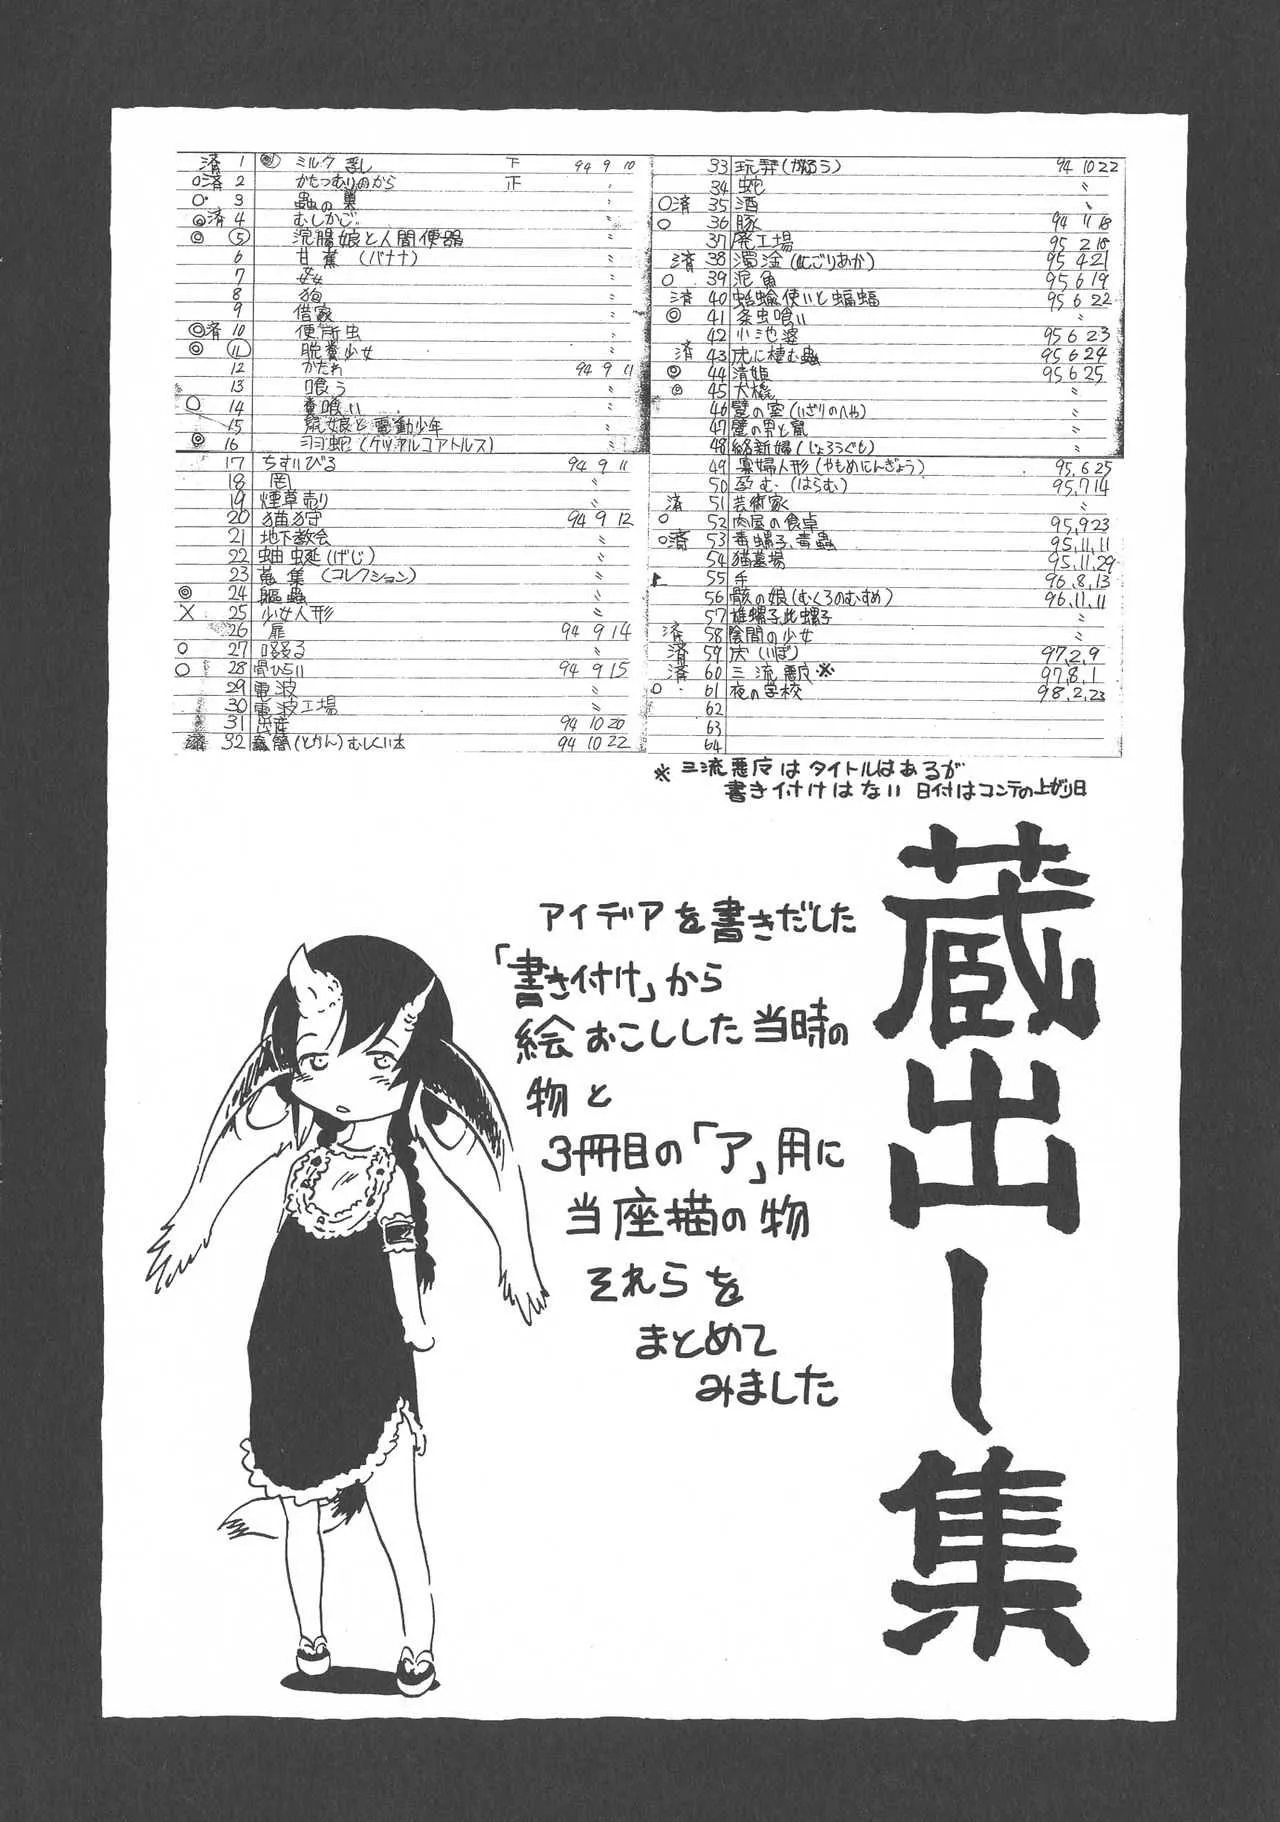 済 1 ◎ ミルク 乳し 下 94 9 10
○済 2 かたつむりのから 正 〃
○ 3 蟲の巣 〃
◎済 4 むしかご 〃
◎ 5 浣腸娘と人間便器 〃
6 甘蕉(バナナ) 〃
7 〃
8 狗 〃
9 借家 〃
◎済 10 便所虫 〃
◎ 11 脱糞少女 〃
12 かたわ 94 9 11
13 喰う 〃
○ 14 糞喰い 〃
15 娘と電動少年 〃
◎ 16 羽蛇(ケツァルコアトルス) 〃
17 ちすいびる 94 9 11
18 〃
19 煙草売り 〃
20 猫狩 94 9 12
21 地下教会 〃
22 蚰蜒(げじ) 〃
23 蒐集(コレクション) 〃
◎ 24 驅蟲 〃
X 25 少女人形 〃
26 扉 94 9 14
○ 27 〃
○ 28 骨ひらい 94 9 15
29 電波 〃
30 電波工場 〃
31 出産 94 10 20
済 32 (とかん)むしくい 94 10 22
33 玩弄(がんろう) 94 10 22
34 蛇 〃
○済 35 酒 〃
○ 36 豚 94 11 18
37 廃工場 95 2 18
済 38 濁淦(にごりあか) 95 4 21
○ 39 泥魚 95 6 19
済 40 蛞蝓使いと蝙蝠 95 6 22
◎ 41 条虫喰い 〃
42 小池婆 95 6 23
済 43 に棲む蟲 95 6 24
◎ 44 清姫 95 6 25
◎ 45 犬機 〃
46 躄の室(いざりのへや) 〃
47 躄の男と 〃
48 絡新婦(じょろうぐも) 〃
49 寡婦人形(やもめにんぎょう) 95.6 25
50 孕む(はらむ) 95.7 14
済 51 芸術家 〃
○ 52 肉屋の食卓 95,9 23
○済 53 毒螺子、毒蟲 95,11,11
54 猫墓場 95,11,29
55 手 96,8,13
56 骸の娘(むくろのむすめ) 96,11,11
57 雄螺子、雌螺子 〃
済 58 陰間の少女 〃
済 59 疣(いぼ) 97,2,9
済 60 三流悪役※ 97,8,1
○ 61 夜の学校 98,2,23
62
63
64
※ 三流悪役はタイトルはあるが
書き付けはない 日付はコンテの上がり日
蔵出し集
アイデアを書きだした
「書き付け」から
絵おこしした当時の
物と
3冊目の「ア」用に
当座描の物
それらを
まとめて
みました